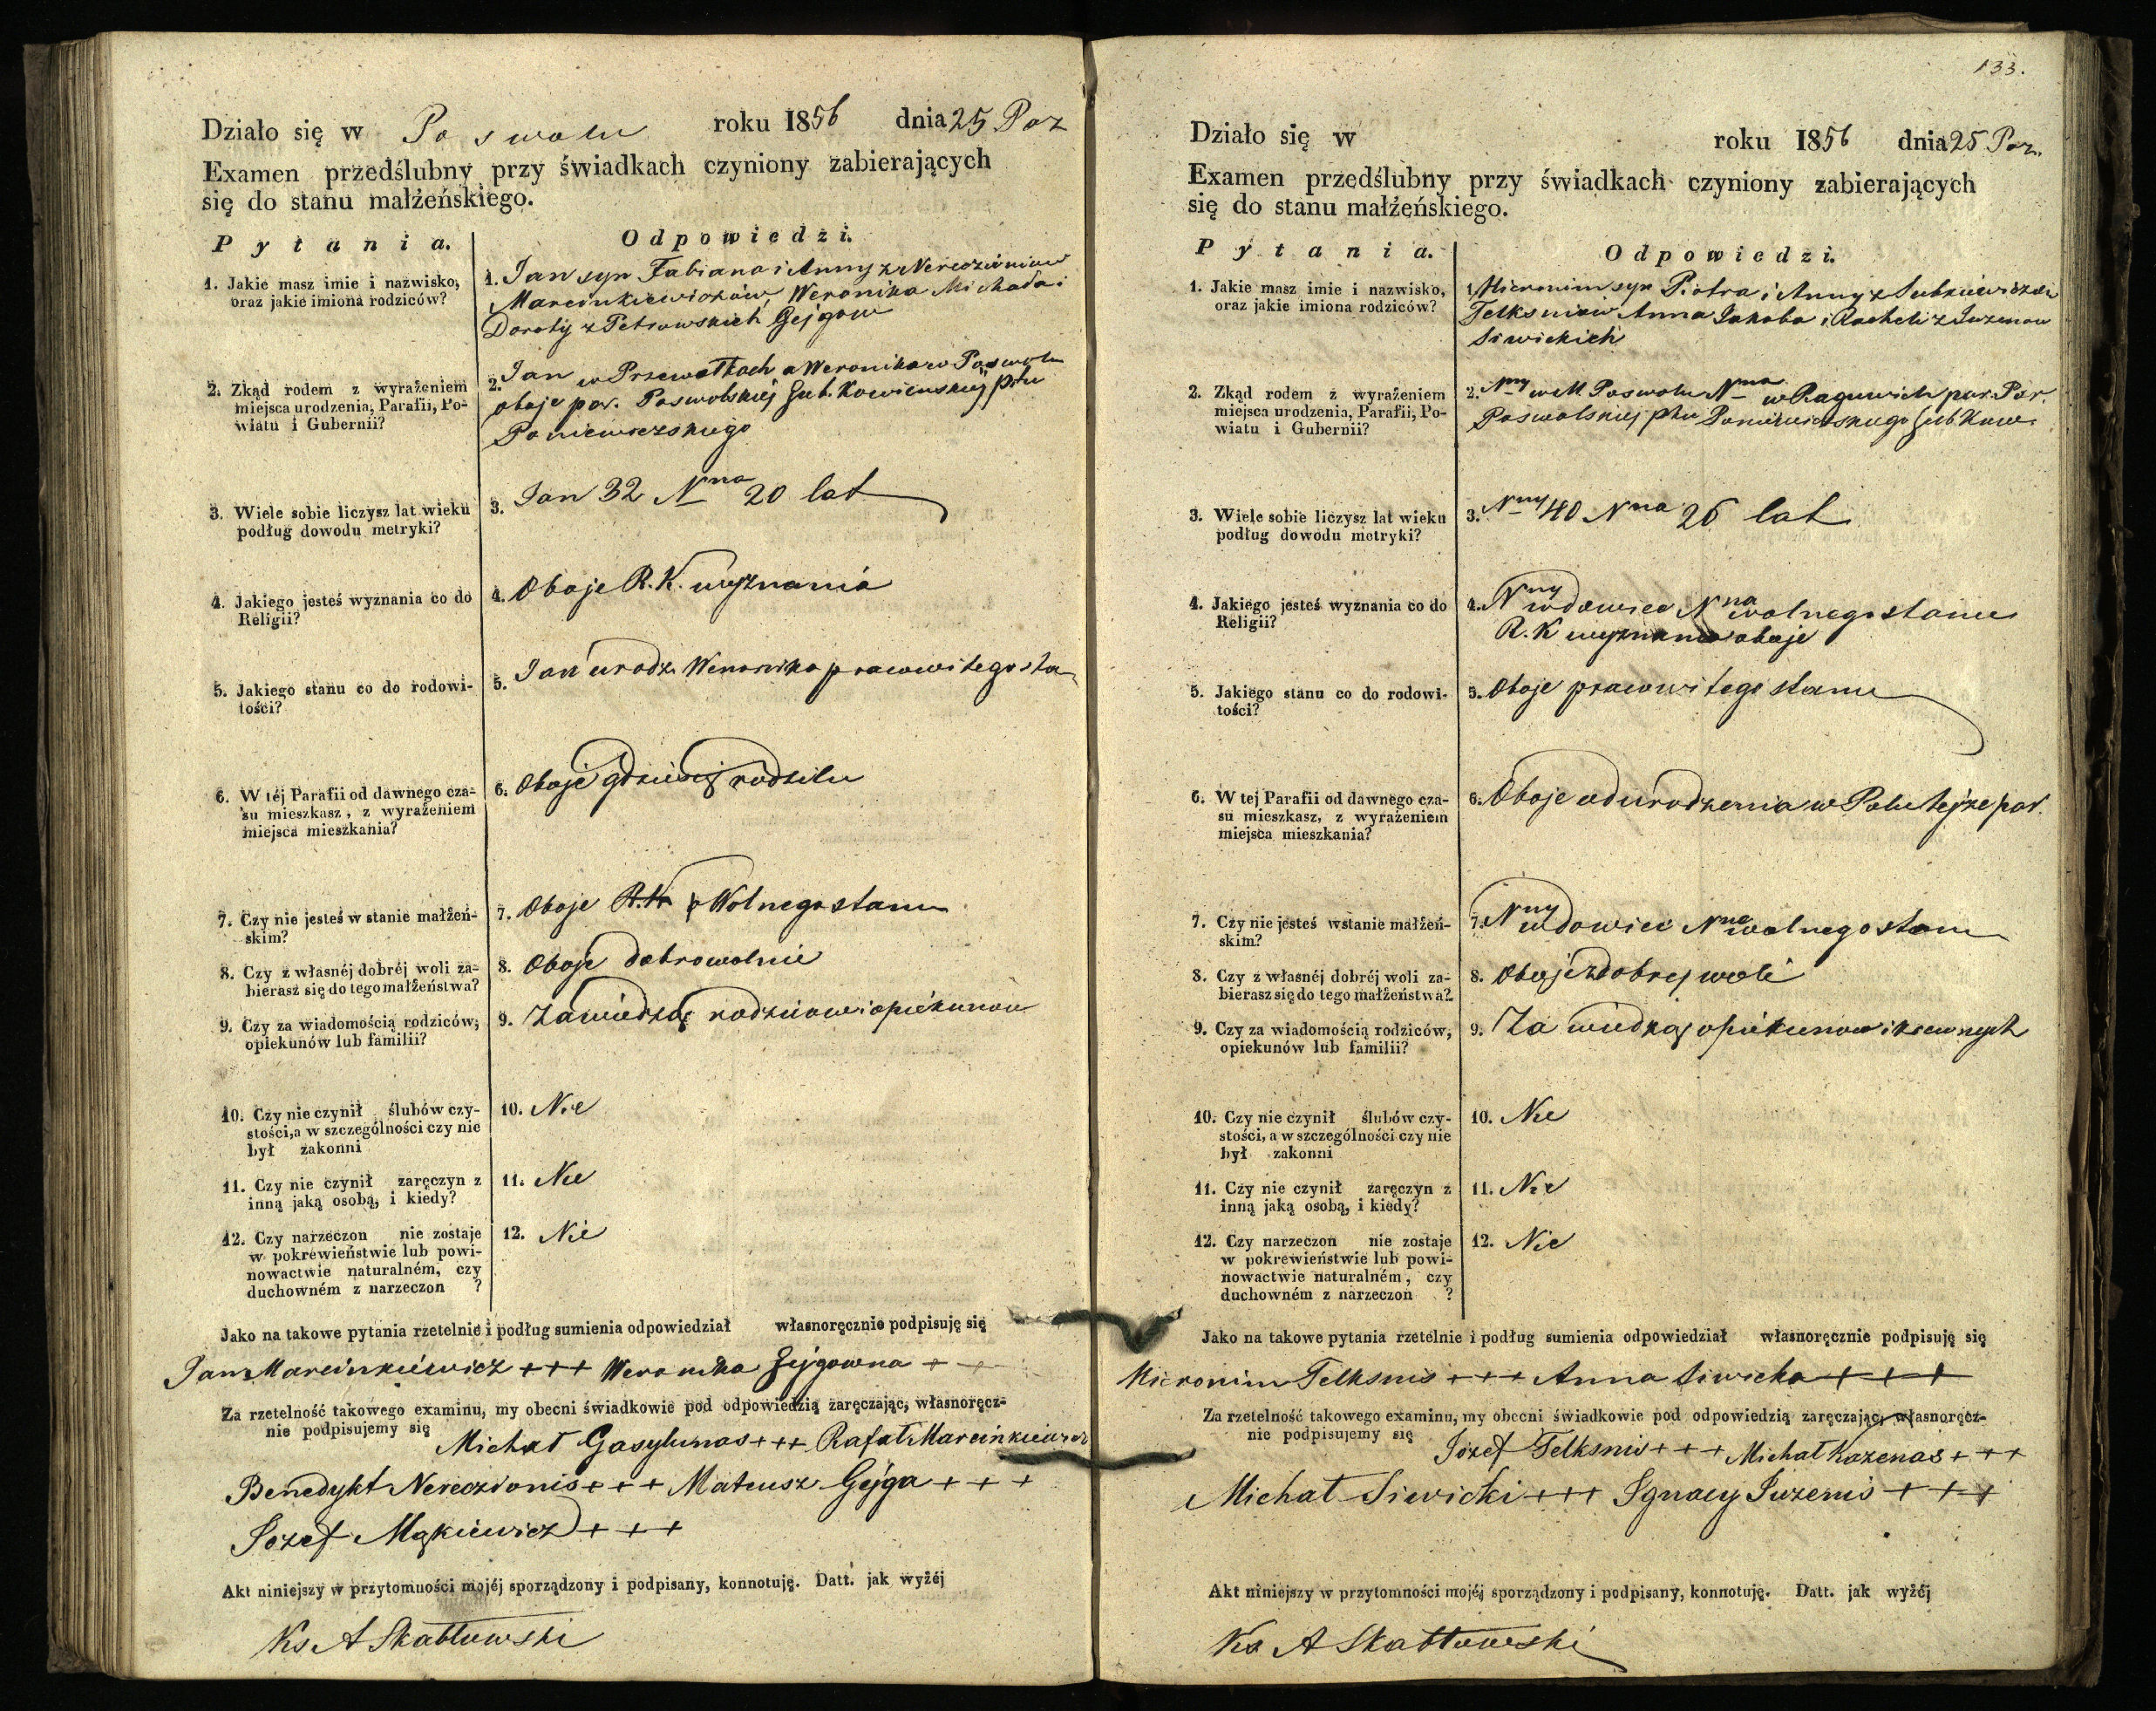 Działo się w Poswolu roku 1856 dnia 25 Paz
Examen przedślubny przy świadkach czyniony zabierających
się do stanu małżeńskiego.
Pytania. Odpowiedzi.
1. Jakie masz imie i nazwisko, oraz jakie imiona rodziców?
1. Jan syn Fabiana i Anny z Nereczioniow
Marcinkiewiczów, Weronika Michała i
Doroty z Petrowskich Gejgow
2. Zkąd rodem z wyrażeniem
miejsca urodzenia, Parafii, Po-
wiatu i Gubernii?
2. Jan w Przewałkach a Weronika w Poswolu
oboje par. Poswolskiej Gub. Kowienskiej Ptu
Poniewiezskiego
3. Wiele sobie liczysz lat wieku
podług dowodu metryki?
3. Jan 32 Nna 20 lat
4. Jakiego jesteś wyznania co do
Religii?
4. Oboje R. K. wyznania
5. Jakiego stanu co do rodowi-
tości?
5. Jan urodz. Weronika prawowitego sta
6. W téj Parafii od dawnego cza-
su mieszkasz, z wyrażeniem
miejsca mieszkania?
6. Oboje gdzie się rodzili
7. Czy nie jesteś w stanie małżeń-
skim?
7. Oboje R.K. Wolnego stanu
8. Czy z własnéj dobréj woli za-
bierasz się do tego małżeństwa?
8. Oboje dobrowolnie
9. Czy za wiadomością rodziców,
opiekunów lub familii?
9. Za wiedzą rodzicow i opiekunow
10. Czy nie czynił ślubów czy-
stości, a w szczególności czy nie
był zakonni
10. Nie
11. Czy nie czynił zaręczyn z
inną jaką osobą, i kiedy?
11. Nie
12. Czy narzeczon nie zostaje
w pokrewieństwie lub powi-
nowactwie naturalném, czy
duchowném z narzeczon ?
12. Nie
Jako na takowe pytania rzetelnie i podług sumienia odpowiedział własnoręcznie podpisuję się
Jan Marcinkiewicz +++ Weronika Gejgowna +
Za rzetelność takowego examinu, my obecni świadkowie pod odpowiedzią zaręczając, własnoręcz-
nie podpisujemy się
Michał Gasylunas +++ Rafał Marcinkiewicz
Benedykt Nereczionis +++ Mateusz Gejga +++
Jozef Mąkiewicz +++
Akt niniejszy w przytomności mojéj sporządzony i podpisany, konnotuję. Datt. jak wyżéj
Ks A Skabłowski
133.
Działo się w roku 1856 dnia 25 Paz.
Examen przedślubny przy świadkach czyniony zabierających
się do stanu małżeńskiego.
Pytania. Odpowiedzi.
1. Jakie masz imie i nazwisko,
oraz jakie imiona rodziców?
1. Hieronim syn Piotra i Anny z
Telksniow Anna Jakoba i Racheli z Juzenow
Siwickich
2. Zkąd rodem z wyrażeniem
miejsca urodzenia, Parafii, Po-
wiatu i Gubernii?
2. Nny w M. Poswolu Nna w Raguwich par. Par.
Poswolskiej Ptu Poniewiezskiego Gub Kow.
3. Wiele sobie liczysz lat wieku
podług dowodu metryki?
3. Nny 40 Nna 26 lat
4. Jakiego jesteś wyznania co do
Religii?
4. Nny wdowiec Nna wolnego stanu
R. K wyznania oboje
5. Jakiego stanu co do rodowi-
tości?
5. Oboje prawowitego stanu
6. W tej Parafii od dawnego cza-
su mieszkasz, z wyrażeniem
miejsca mieszkania?
6. Oboje od urodzenia w tejze par.
7. Czy nie jesteś wstanie małżeń-
skim?
7. Nny wdowiec Nna wolnego stanu
8. Czy z własnéj dobréj woli za-
bierasz się do tego małżeństwa?
8. Oboje z dobrej woli
9. Czy za wiadomością rodziców,
opiekunów lub familii?
9. Za wiedzą opiekunow i krewnych
10. Czy nie czynił ślubów czy-
stości, a w szczególności czy nie
był zakonni
10. Nie
11. Czy nie czynił zaręczyn z
inną jaką osobą, i kiedy?
11. Nie
12. Czy narzeczon nie zostaje
w pokrewieństwie lub powi-
nowactwie naturalném, czy
duchowném z narzeczon ?
12. Nie
Jako na takowe pytania rzetelnie i podług sumienia odpowiedział własnoręcznie podpisuję się
Hieronim Telksnis +++ Anna Siwicka +++
Za rzetelność takowego examinu, my obecni świadkowie pod odpowiedzią zaręczając, własnoręcz-
nie podpisujemy się
Jozef Telksnis +++ Michał Kazenas +++
Michał Siwicki +++ Ignacy Juzenis +++
Akt niniejszy w przytomności mojéj sporządzony i podpisany, konnotuję. Datt. jak wyżéj
Ks A Skabłowski